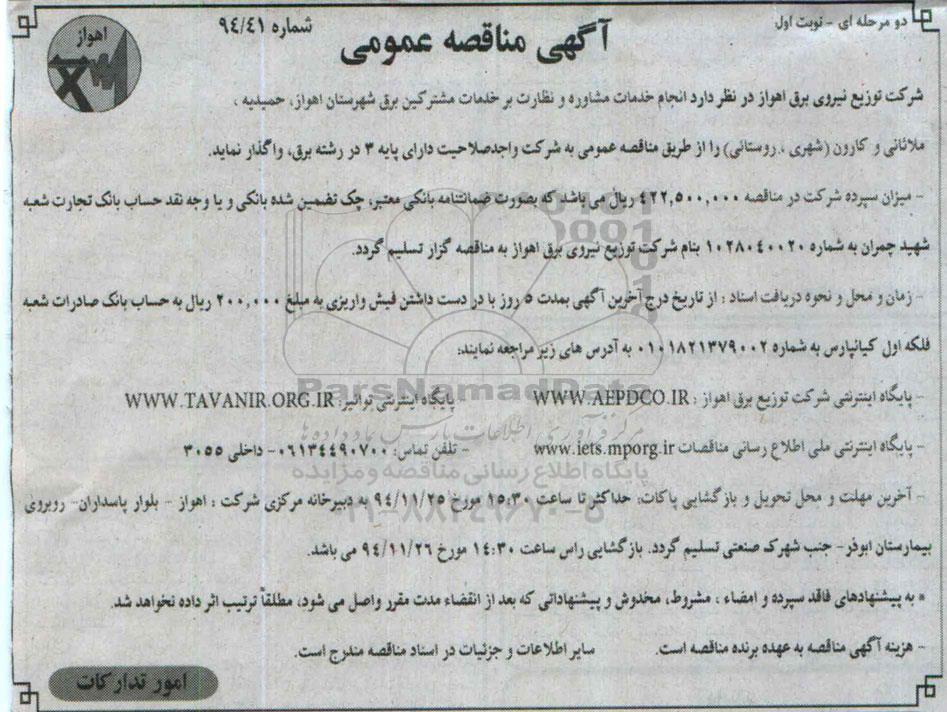 دو مرحله ای - نوبت اول
شماره ۹۴/۴۱
اهواز
آگهی مناقصه عمومی
شرکت توزیع نیروی برق اهواز در نظر دارد انجام خدمات مشاوره و نظارت بر خدمات مشترکین برق شهرستان اهواز، حمیدیه ،
ملاثانی و کارون (شهری ، روستائی) را از طریق مناقصه عمومی به شرکت واجدصلاحیت دارای پایه ۳ در رشته برق، واگذار نماید.
- میزان سپرده شرکت در مناقصه ۴۲۲,۵۰۰,۰۰۰ ریال می باشد که بصورت ضمانتنامه بانکی معتبر، چک تضمین شده بانکی و یا وجه نقد حساب بانک تجارت شعبه
شهید چمران به شماره ۱۰۲۸۰۴۰۰۲۰ بنام شرکت توزیع نیروی برق اهواز به مناقصه گزار تسلیم گردد.
- زمان و محل و نحوه دریافت اسناد : از تاریخ درج آخرین آگهی بمدت ۵ روز با در دست داشتن فیش واریزی به مبلغ ۲۰۰,۰۰۰ ریال به حساب بانک صادرات شعبه
فلکه اول کیانپارس به شماره ۰۱۰۱۸۲۱۳۷۹۰۰۲ به آدرس های زیر مراجعه نمایند:
- پایگاه اینترنتی شرکت توزیع برق اهواز : WWW.AEPDCO.IR پایگاه اینترنتی توانیر: WWW.TAVANIR.ORG.IR
ParsNamadData
مرکز فرآوری اطلاعات پارس نماد داده ها
- پایگاه اینترنتی ملی اطلاع رسانی مناقصات www.iets.mporg.ir - تلفن تماس: ۰۶۱۳۴۴۹۰۷۰۰- داخلی ۳۰۵۵
پایگاه اطلاع رسانی مناقصه و مزایده
- آخرین مهلت و محل تحویل و بازگشایی پاکات: حداکثر تا ساعت ۱۵:۳۰ مورخ ۹۴/۱۱/۲۵ به دبیرخانه مرکزی شرکت : اهواز - بلوار پاسداران- روبروی
۰۲۱-۸۸۳۴۹۶۷۰-۵
بیمارستان ابوذر- جنب شهرک صنعتی تسلیم گردد. بازگشایی راس ساعت ۱۴:۳۰ مورخ ۹۴/۱۱/۲۶ می باشد.
* به پیشنهادهای فاقد سپرده و امضاء ، مشروط، مخدوش و پیشنهاداتی که بعد از انقضاء مدت مقرر واصل می شود، مطلقاً ترتیب اثر داده نخواهد شد.
- هزینه آگهی مناقصه به عهده برنده مناقصه است. سایر اطلاعات و جزئیات در اسناد مناقصه مندرج است.
امور تدارکات